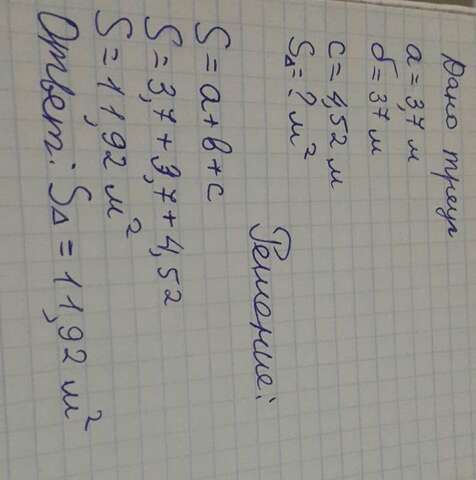 Дано треуг
a = 3,7 м
б = 37 м
c = 4,52 м
S△ = ? м²
Решение:
S = a + b + c
S = 3,7 + 3,7 + 4,52
S = 11,92 м²
Ответ: S△ = 11,92 м²